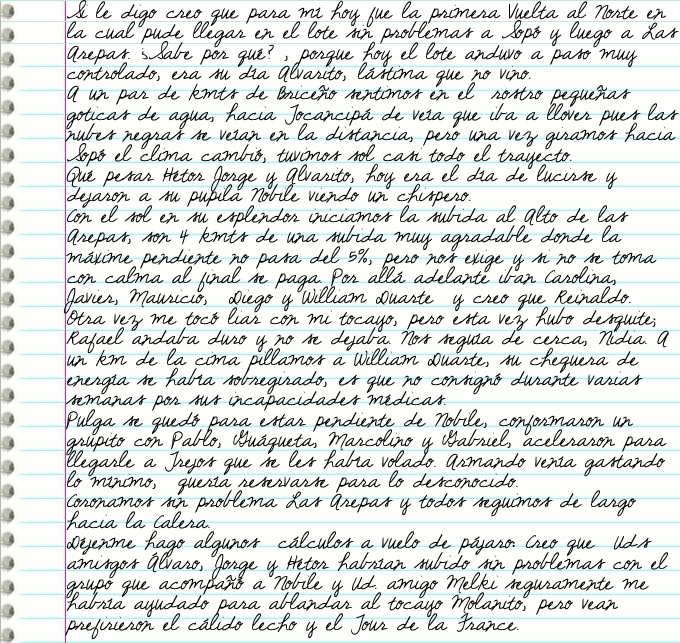 Si le digo creo que para mi hoy fue la primera Vuelta al Norte en
la cual pude llegar en el lote sin problemas a Sopó y luego a Las
Arepas. ¿Sabe por qué? , porque hoy el lote anduvo a paso muy
controlado, era su día Alvarito, lástima que no vino.
A un par de kmts de Briceño sentimos en el rostro pequeñas
goticas de agua, hacia Tocancipá de veía que iba a llover pues las
nubes negras se veían en la distancia, pero una vez giramos hacia
Sopó el clima cambió, tuvimos sol casi todo el trayecto.
Qué pesar Hétor Jorge y Alvarito, hoy era el día de lucirse y
dejaron a su pupila Nobile viendo un chispero.
Con el sol en su esplendor iniciamos la subida al Alto de las
Arepas, son 4 kmts de una subida muy agradable donde la
máxime pendiente no pasa del 5%, pero nos exige y si no se toma
con calma al final se paga. Por allá adelante iban Carolina,
Javier, Mauricio, Diego y William Duarte y creo que Reinaldo.
Otra vez me tocó liar con mi tocayo, pero esta vez hubo desquite;
Rafael andaba duro y no se dejaba. Nos seguía de cerca, Nidia. A
un km de la cima pillamos a William Duarte, su chequera de
energía se había sobregirado, es que no consignó durante varias
semanas por sus incapacidades médicas.
Pulga se quedó para estar pendiente de Nobile, conformaron un
grupito con Pablo, Guáqueta, Marcolino y Gabriel, aceleraron para
llegarle a Trejos que se les había volado. Armando venía gastando
lo mínimo, quería reservarse para lo desconocido.
Coronamos sin problema Las Arepas y todos seguimos de largo
hacia la Calera.
Déjenme hago algunos cálculos a vuelo de pájaro: Creo que Uds
amisgos Álvaro, Jorge y Hétor habrían subido sin problemas con el
grupo que acompañó a Nobile y Ud. amigo Melki seguramente me
habría ayudado para ablandar al tocayo Molanito, pero vean
prefirieron el cálido lecho y el Tour de la France.